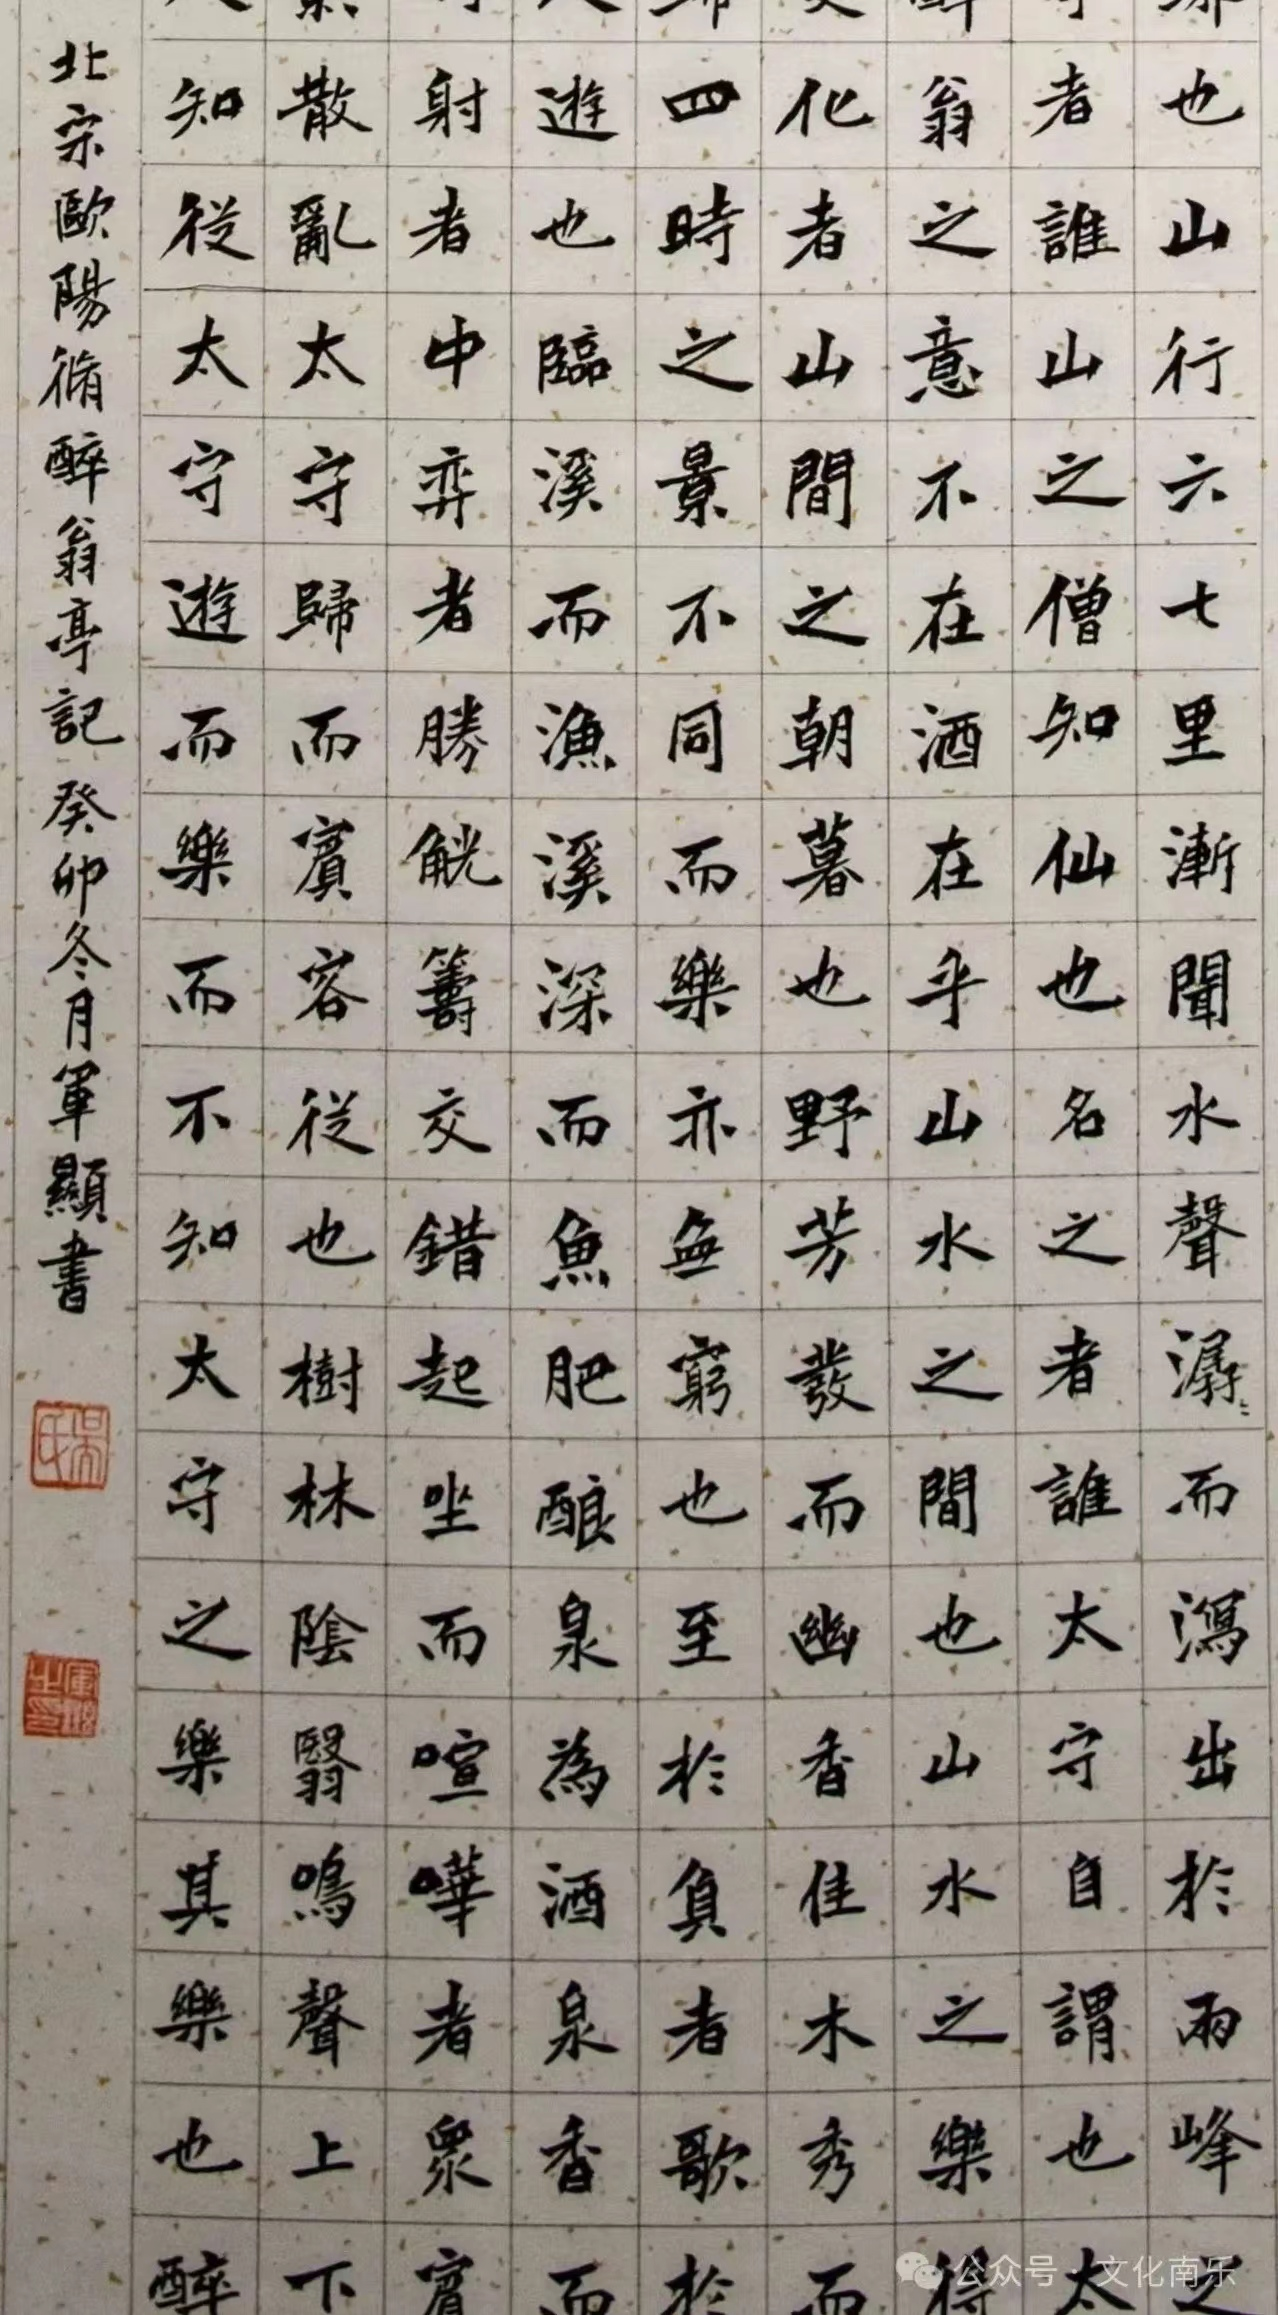 也山行六七里漸聞水聲潺〻而瀉出於兩峰之
者誰山之僧知仙也名之者誰太守自謂也太
翁之意不在酒在乎山水之間也山水之樂得
化者山間之朝暮也野芳發而幽香佳木秀而
四時之景不同而樂亦無窮也至於負者歌於
遊也臨溪而漁溪深而魚肥酿泉為酒泉香而
射者中弈者勝觥籌交錯起坐而喧嘩者眾賓
散亂太守歸而賓客從也樹林陰翳鳴聲上下
知從太守遊而樂而不知太守之樂其樂也醉
北宋歐陽脩醉翁亭記癸卯冬月軍顯書
吳氏
公众号 · 文化南乐